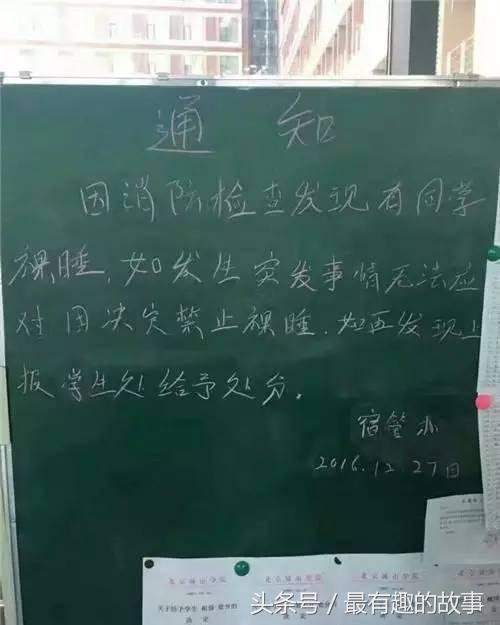 通 知
因消防检查发现有同学
裸睡,如发生突发事情无法应
对因决定禁止裸睡.如再发现上
报学生处给予处分。
宿管办
2016.12.27日
北京城市学院
北京城市学院
北京城市学院
关于给予学生
决定
头条号 / 最有趣的故事